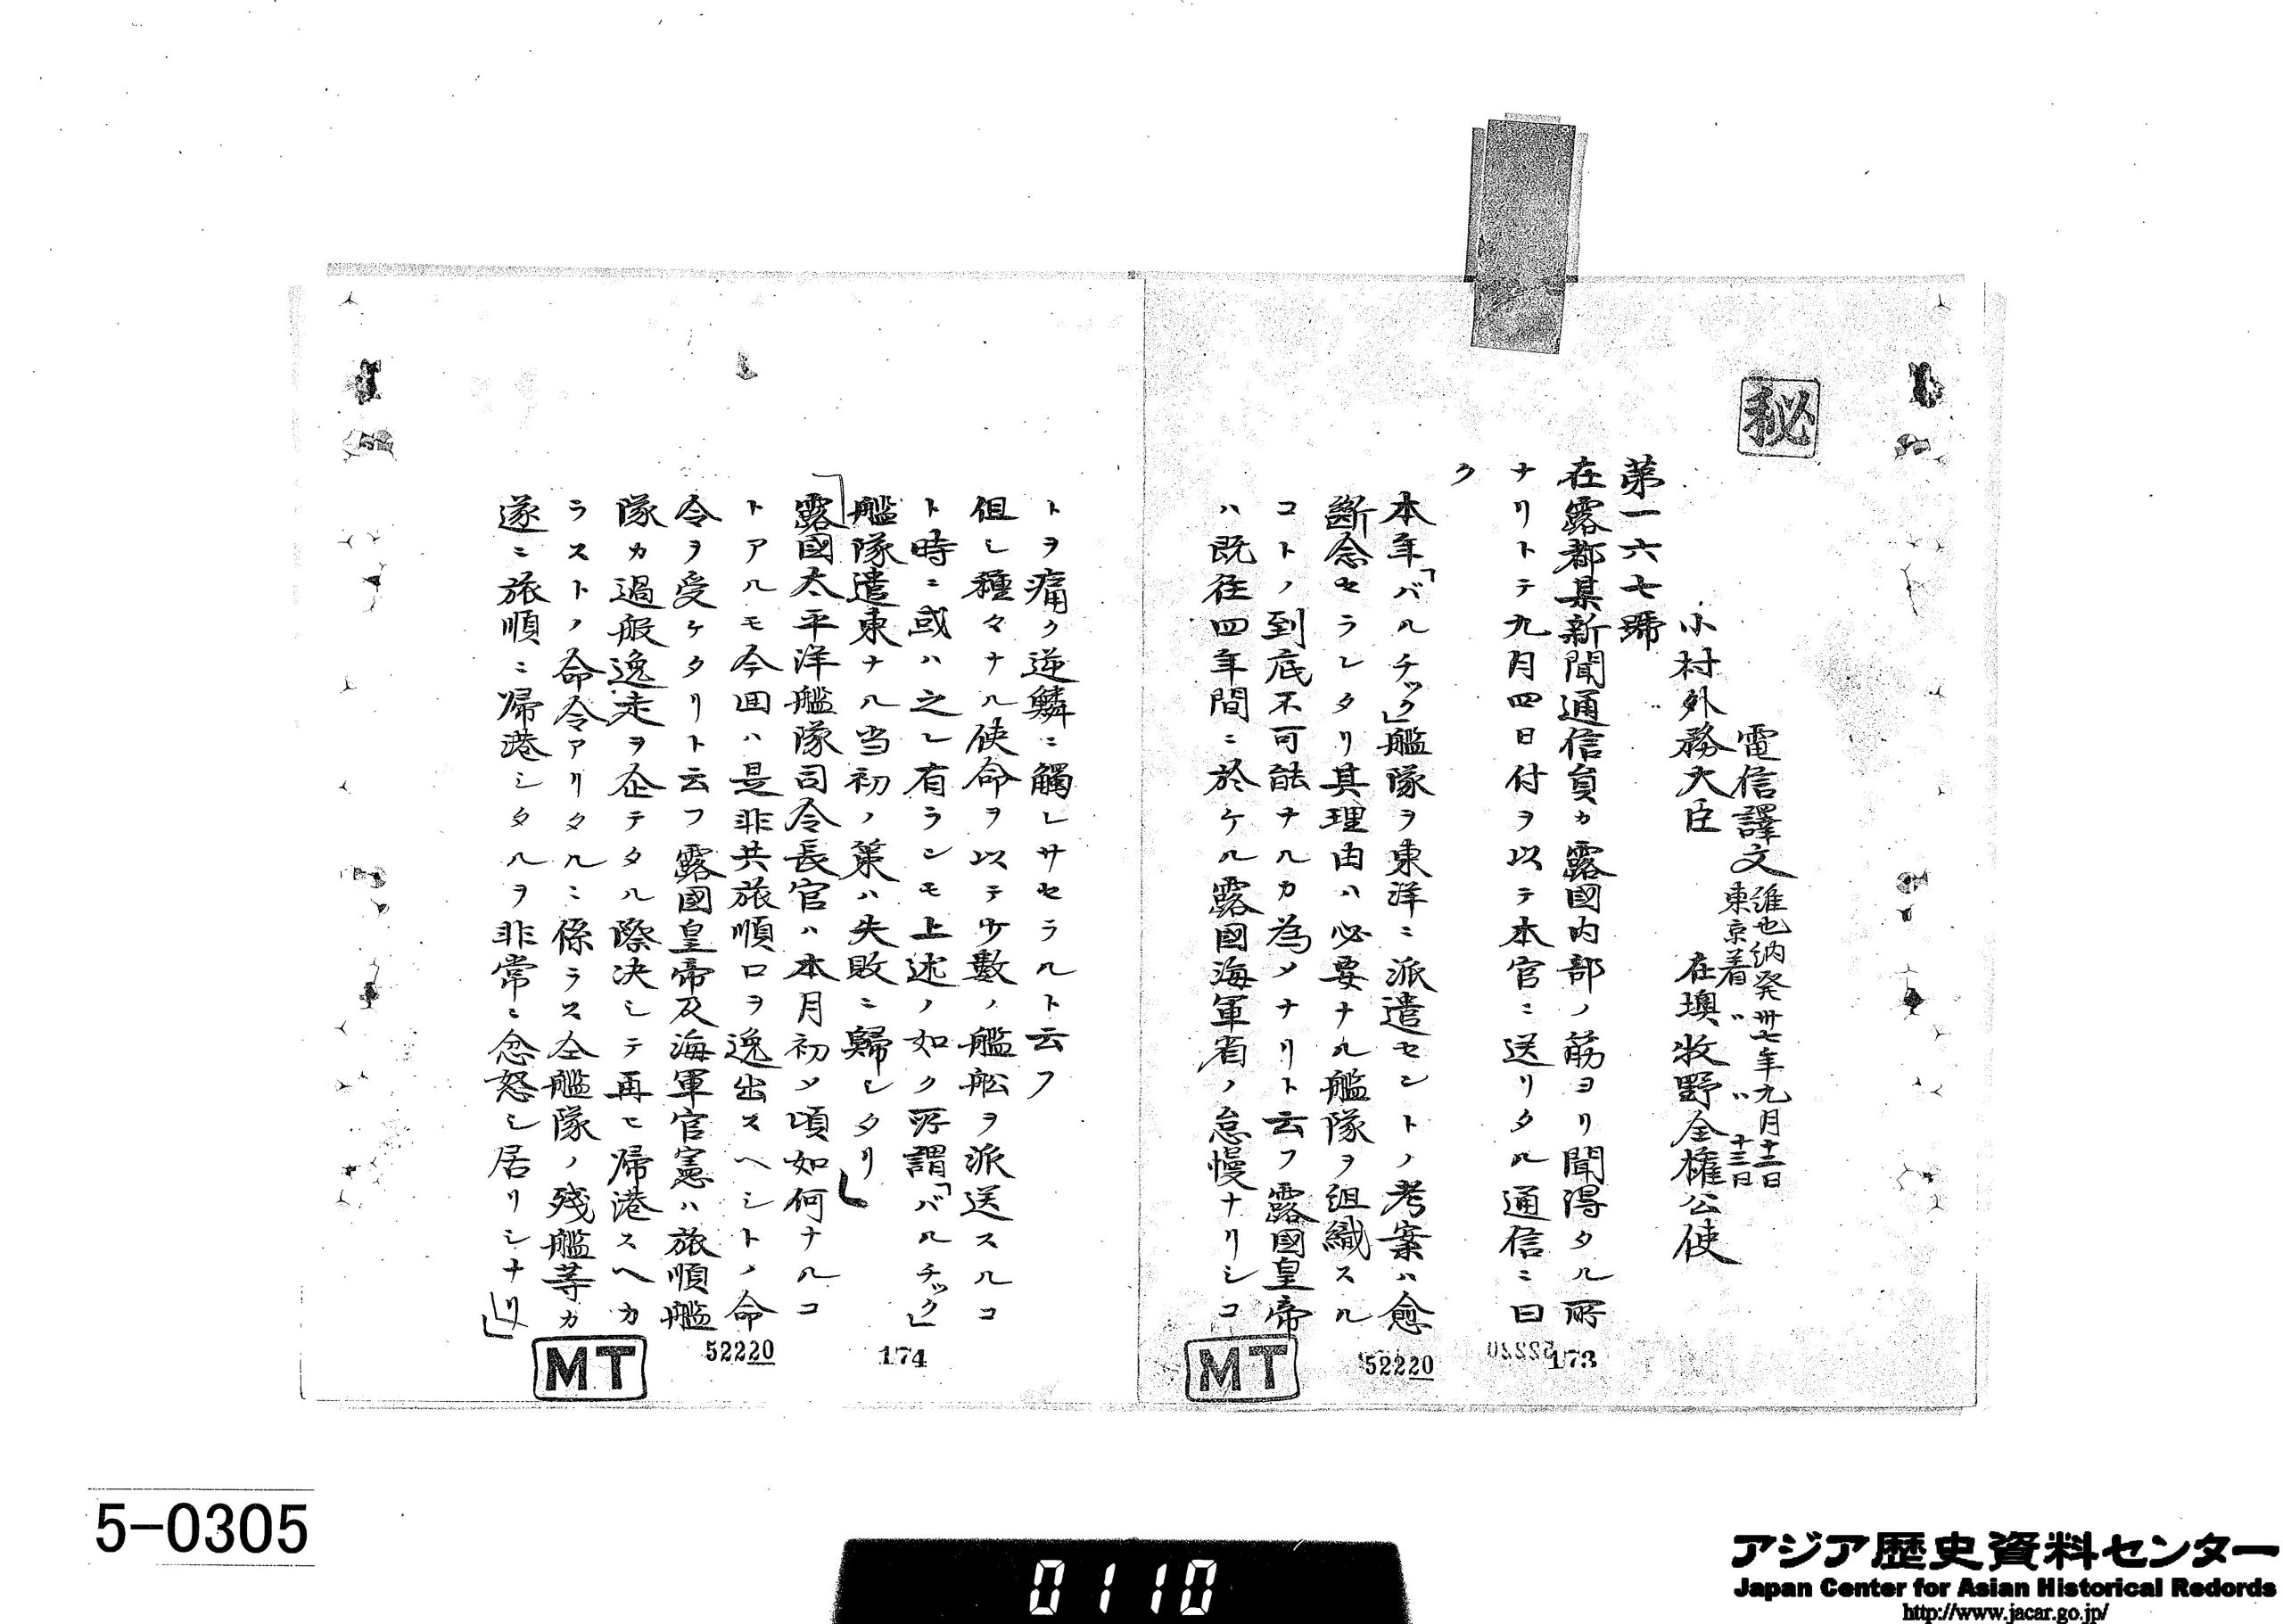 秘
電信譯文 維也納発卅七年九月十二日
東京着〃〃十三日
小村外務大臣 在墺牧野全権公使
第一六七號
在露都某新聞通信員カ露國内部ノ筋ヨリ聞得タル所
ナリトテ九月四日付ヲ以テ本官ニ送リタル通信ニ曰
ク
本年「バルチック」艦隊ヲ東洋ニ派遣セントノ考案ハ愈
断念セラレタリ其理由ハ必要ナル艦隊ヲ組織スル
コトノ到底不可能ナルカ為メナリト云フ露國皇帝
ハ既往四年間ニ於ケル露國海軍省ノ怠慢ナリシコ
52220
173
MT
トヲ痛ク逆鱗ニ觸レサセラルト云フ
但シ種々ナル使命ヲ以テ少數ノ艦舩ヲ派送スルコ
ト時ニ或ハ之レ有ランモ上述ノ如ク所謂「バルチック」
艦隊遣東ナル当初ノ策ハ失敗ニ歸シタリ
露國太平洋艦隊司令長官ハ本月初メ頃如何ナルコ
トアルモ今回ハ是非共旅順口ヲ逸出スヘシトノ命
令ヲ受ケタリト云フ露國皇帝及海軍官憲ハ旅順艦
隊カ過般逸走ヲ企テタル際決シテ再ヒ帰港スヘカ
ラストノ命令アリタルニ係ラス全艦隊ノ残艦等カ
遂ニ旅順ニ帰港シタルヲ非常ニ忿怒シ居リシナリ
52220
174
MT
5-0305
0110
アジア歴史資料センター
Japan Center for Asian Historical Redords
http://www.jacar.go.jp/